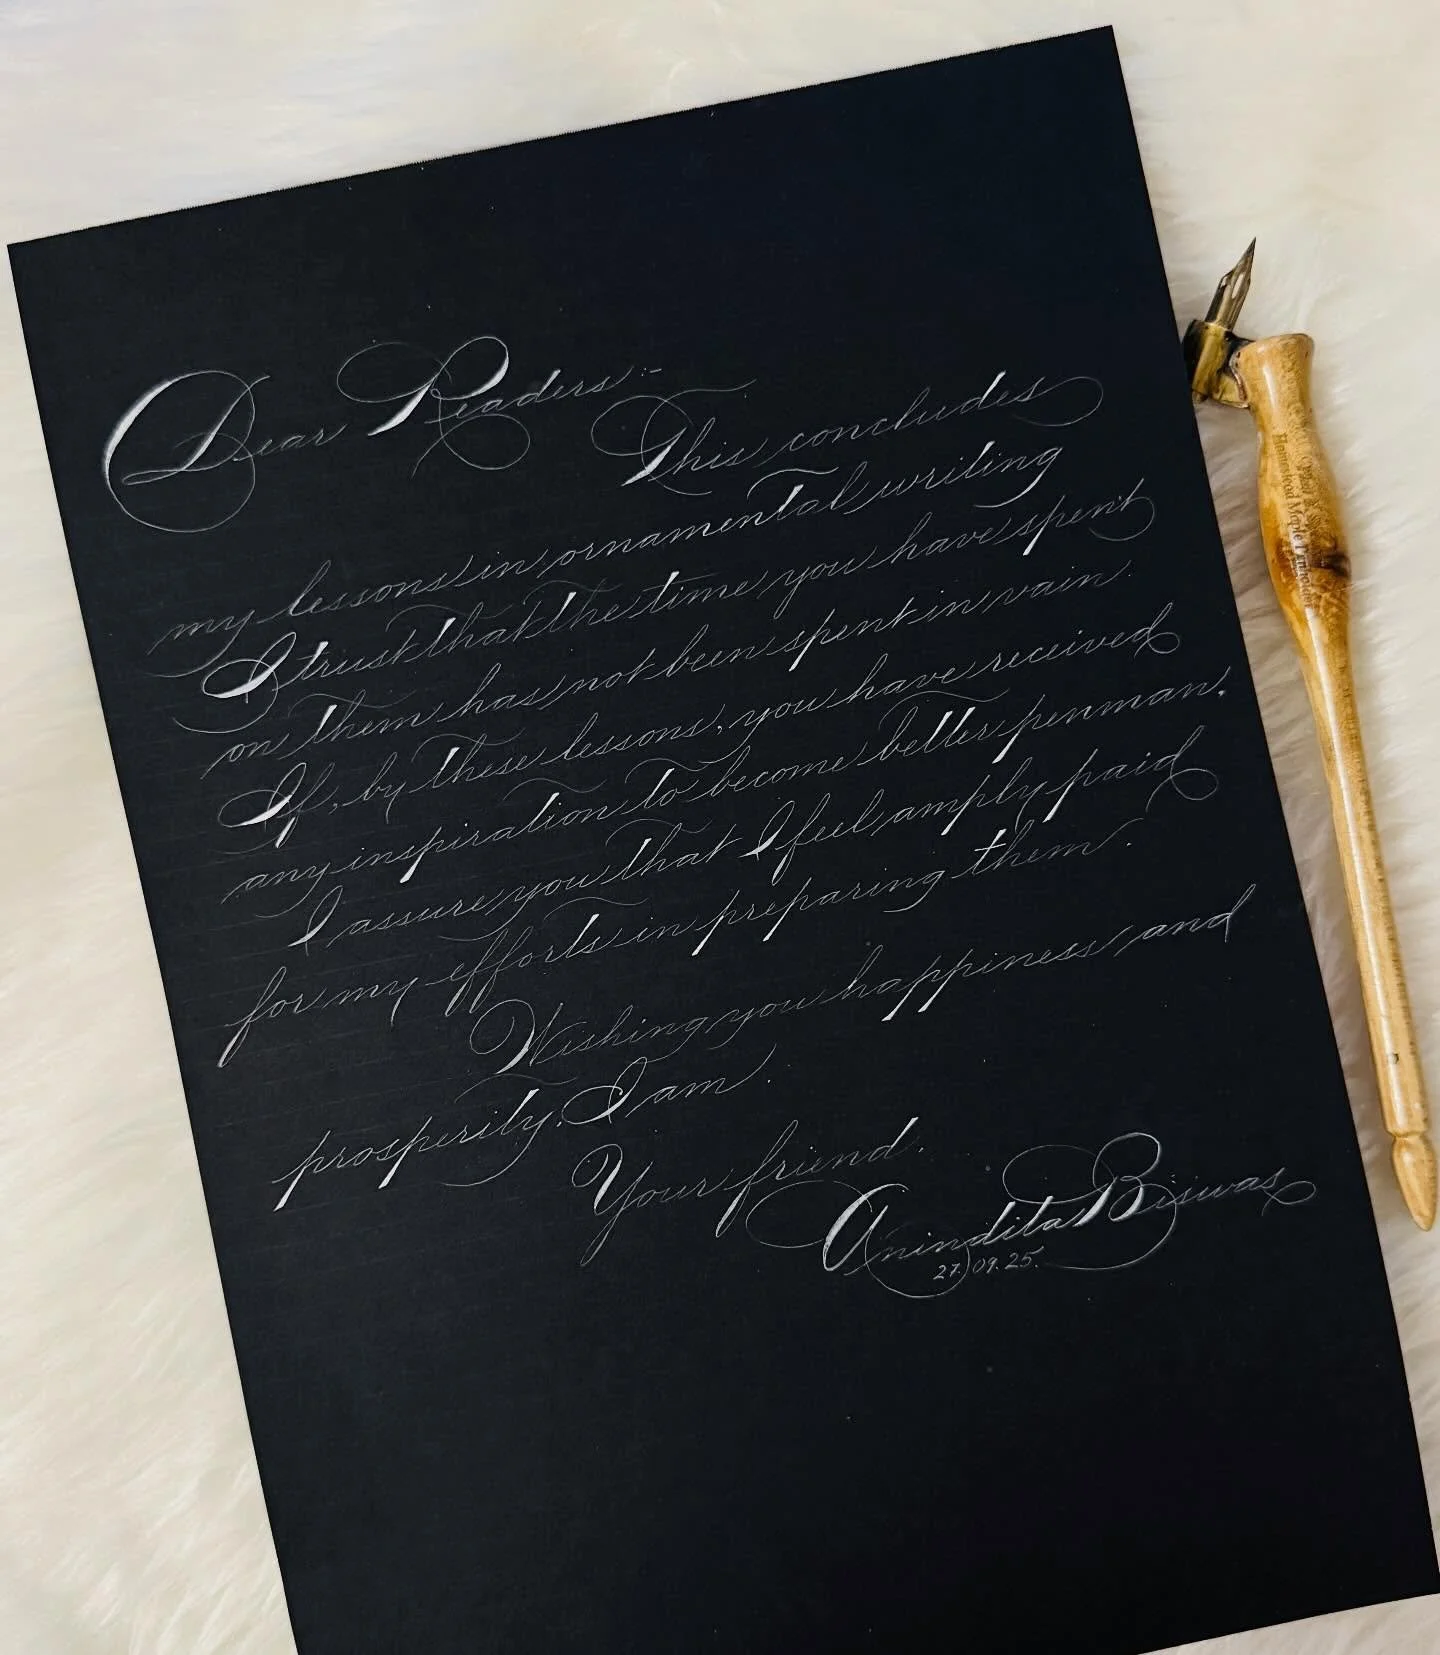 Dear Readers:-
This concludes
my lessons in ornamental writing
I trust that the time you have spent
on them has not been spent in vain.
If, by these lessons, you have received
any inspiration to become better penman,
I assure you that I feel amply paid
for my efforts in preparing them.
Wishing you happiness and
prosperity, I am.
Your friend,
Anindita Biswas
27.09.25.